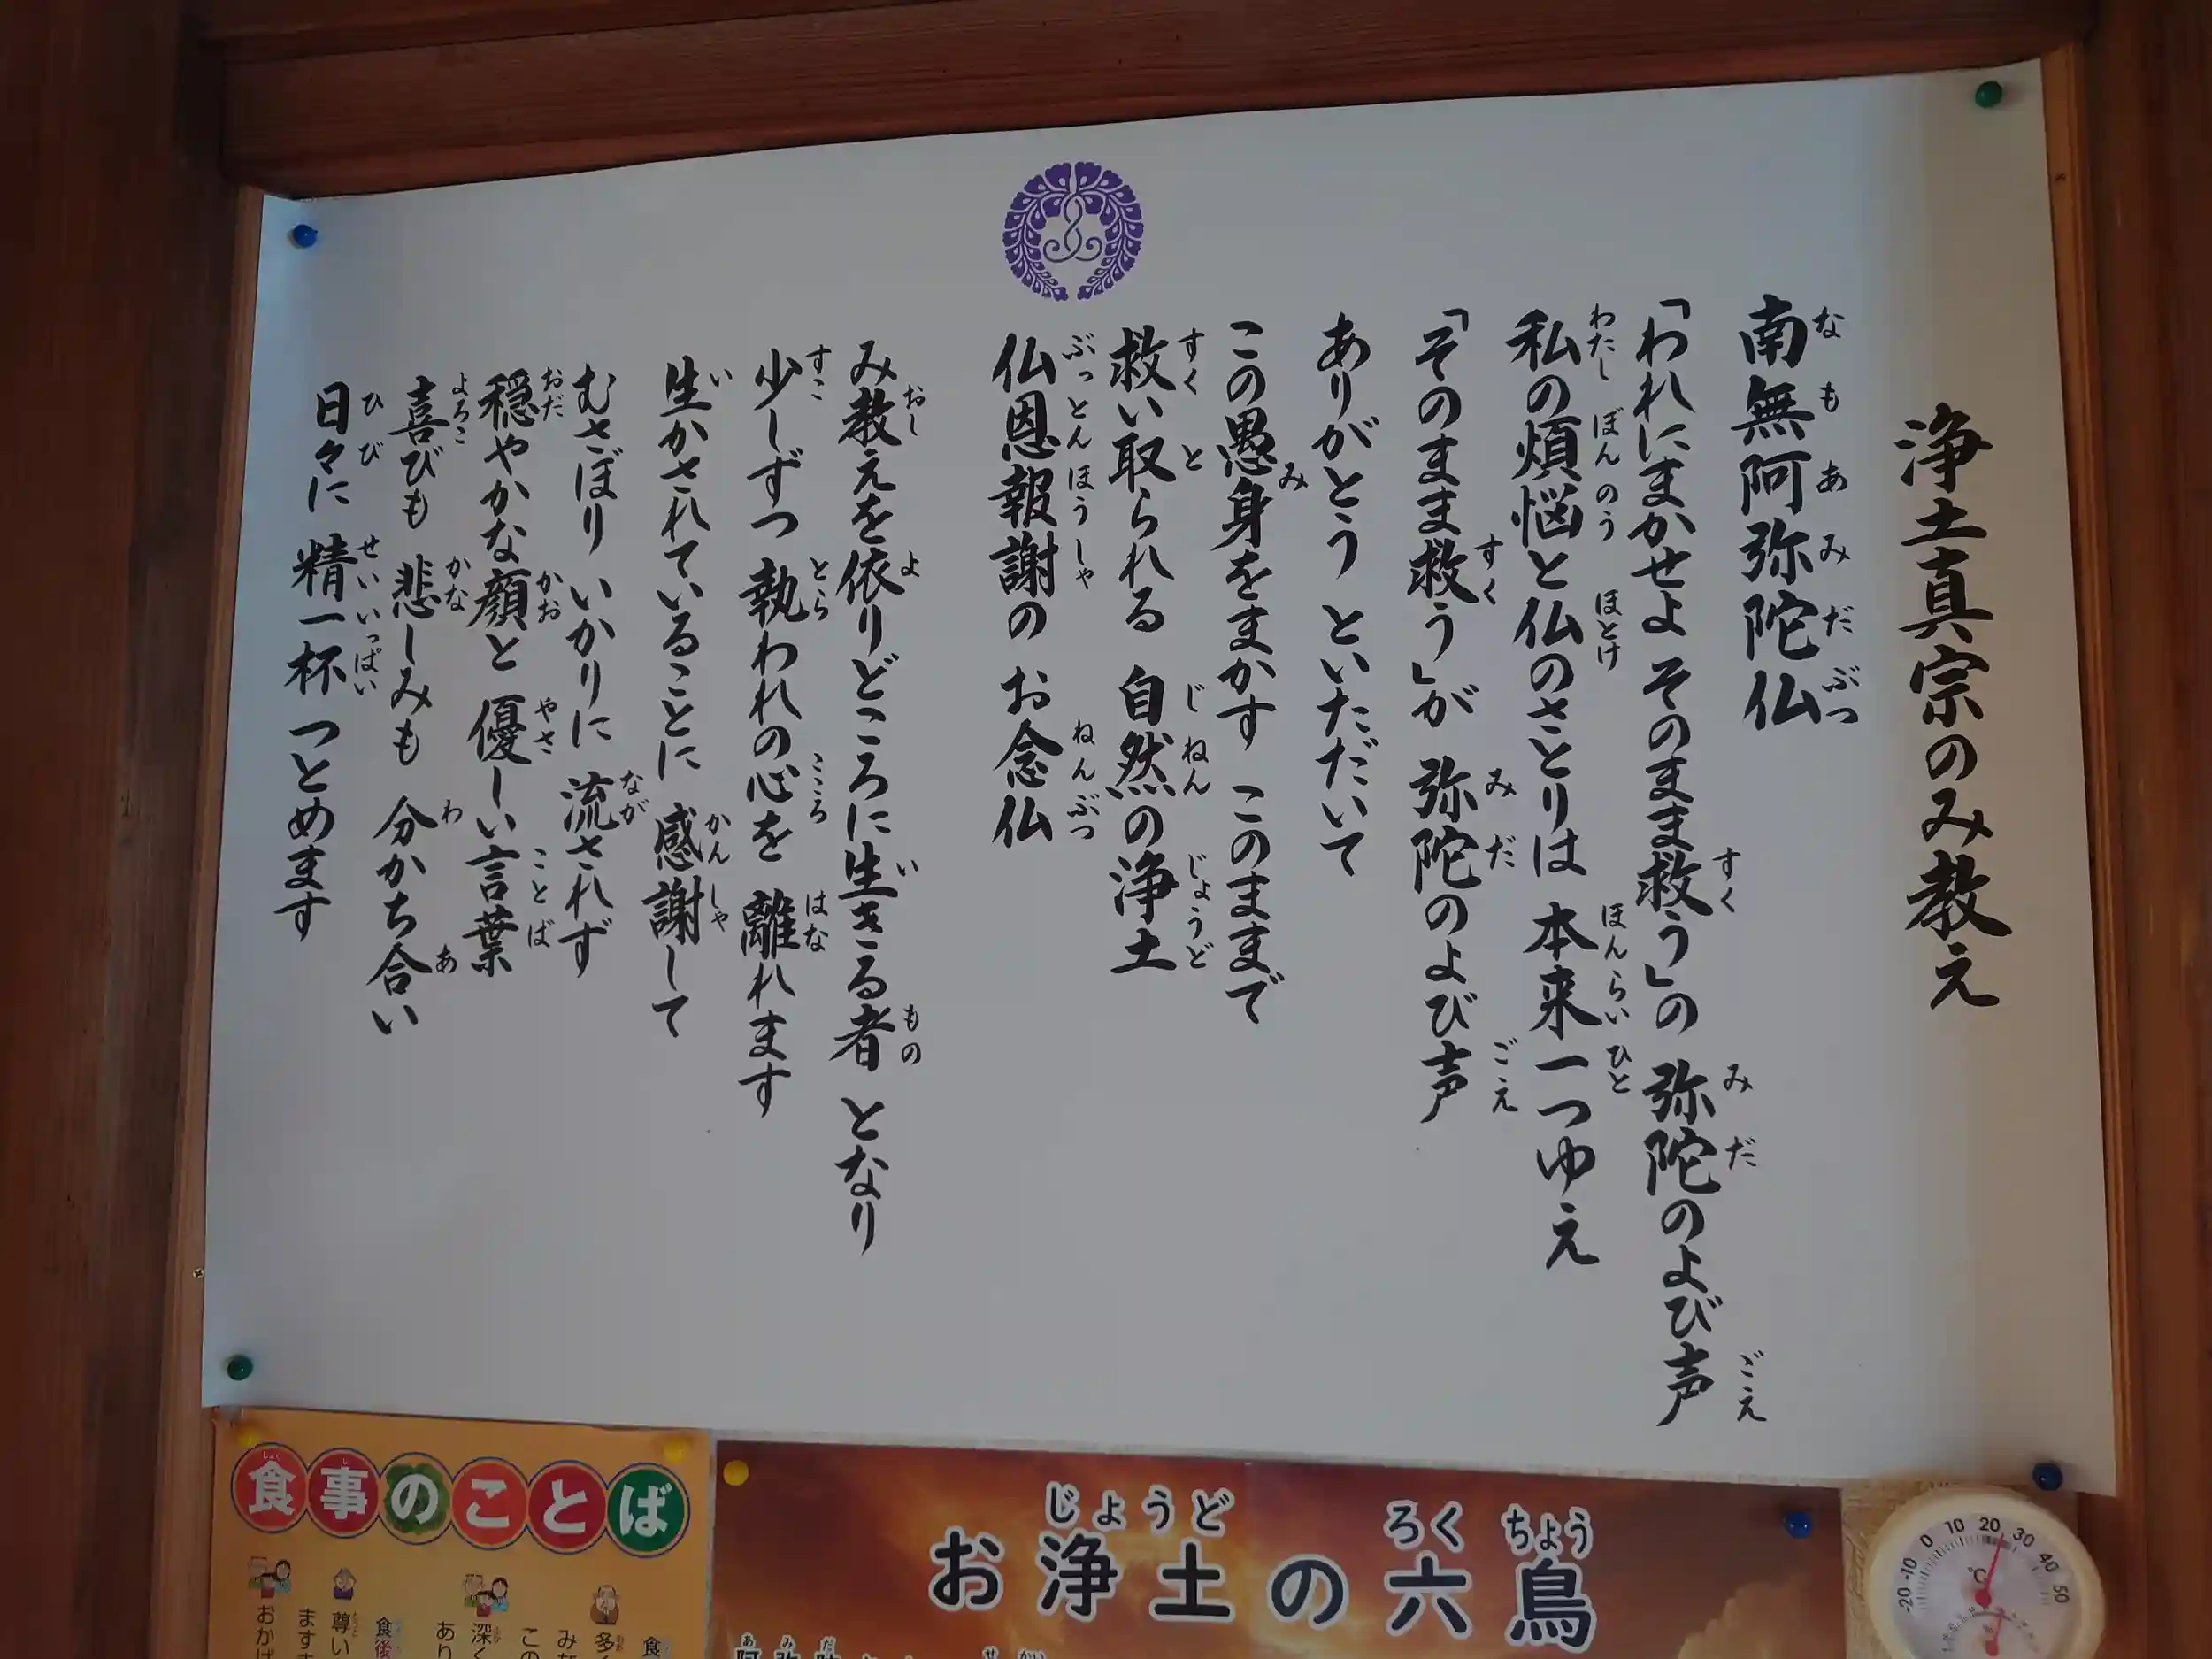 浄土真宗のみ教え
南無阿弥陀仏
「われにまかせよ そのまま救う」の 弥陀のよび声
私の煩悩と仏のさとりは 本来一つゆえ
「そのまま救う」が 弥陀のよび声
ありがとう といただいて
この愚身をまかす このままで
救い取られる 自然の浄土
仏恩報謝の お念仏
み教えを依りどころに生きる者 となり
少しずつ 執われの心を 離れます
生かされていることに 感謝して
むさぼり いかりに 流されず
穏やかな顔と 優しい言葉
喜びも 悲しみも 分かち合い
日々に 精一杯 つとめます
食事のことば
お浄土の六鳥
食
多
み
この
深く
あり
食後
尊い
ます
おかげ
-20 -10 0 10 20 30 40 50
℃